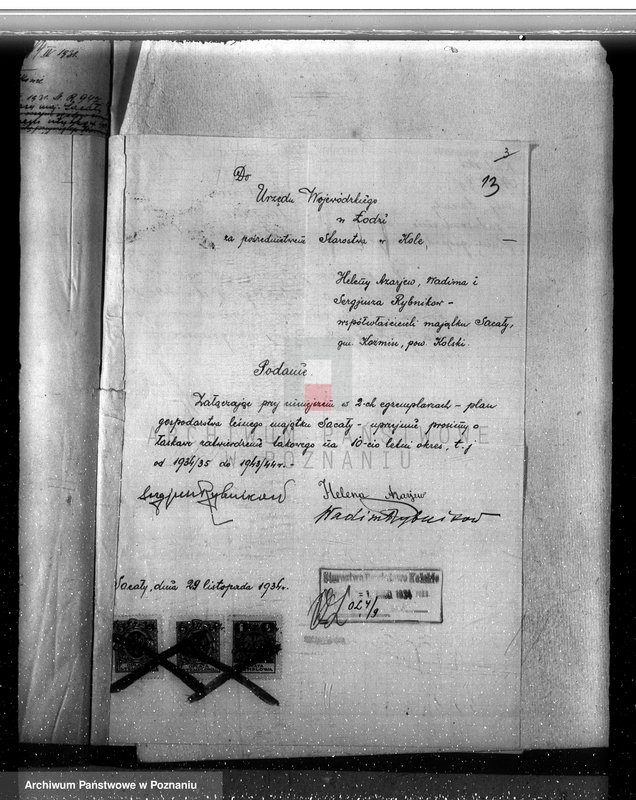 3
13
Do
Urzędu Wojewódzkiego
w Łodzi
za pośrednictwem Starostwa w Kole,
Heleny Azarjew, Wadima i
Sergjusza Rybnikow -
współwłaścicieli majątku Sacały,
gm. Koźmin, pow. Kolski.
Podanie.
Załączając przy niniejszem w 2-ch egzemplarzach - plan
gospodarstwa leśnego majątku Sacały - uprzejmie prosimy o
łaskawe zatwierdzenie takowego na 10-cio letni okres, t.j
od 1934/35 do 1943/44 r. -
Sergjusz Rybnikow Helena Azarjew
Wadim Rybnikow
Sacały, dnia 29 listopada 1934r.
Starostwo Powiatowe Kolskie
1934
ARCHIWUM PAŃSTWOWE
W POZNANIU
Archiwum Państwowe w Poznaniu